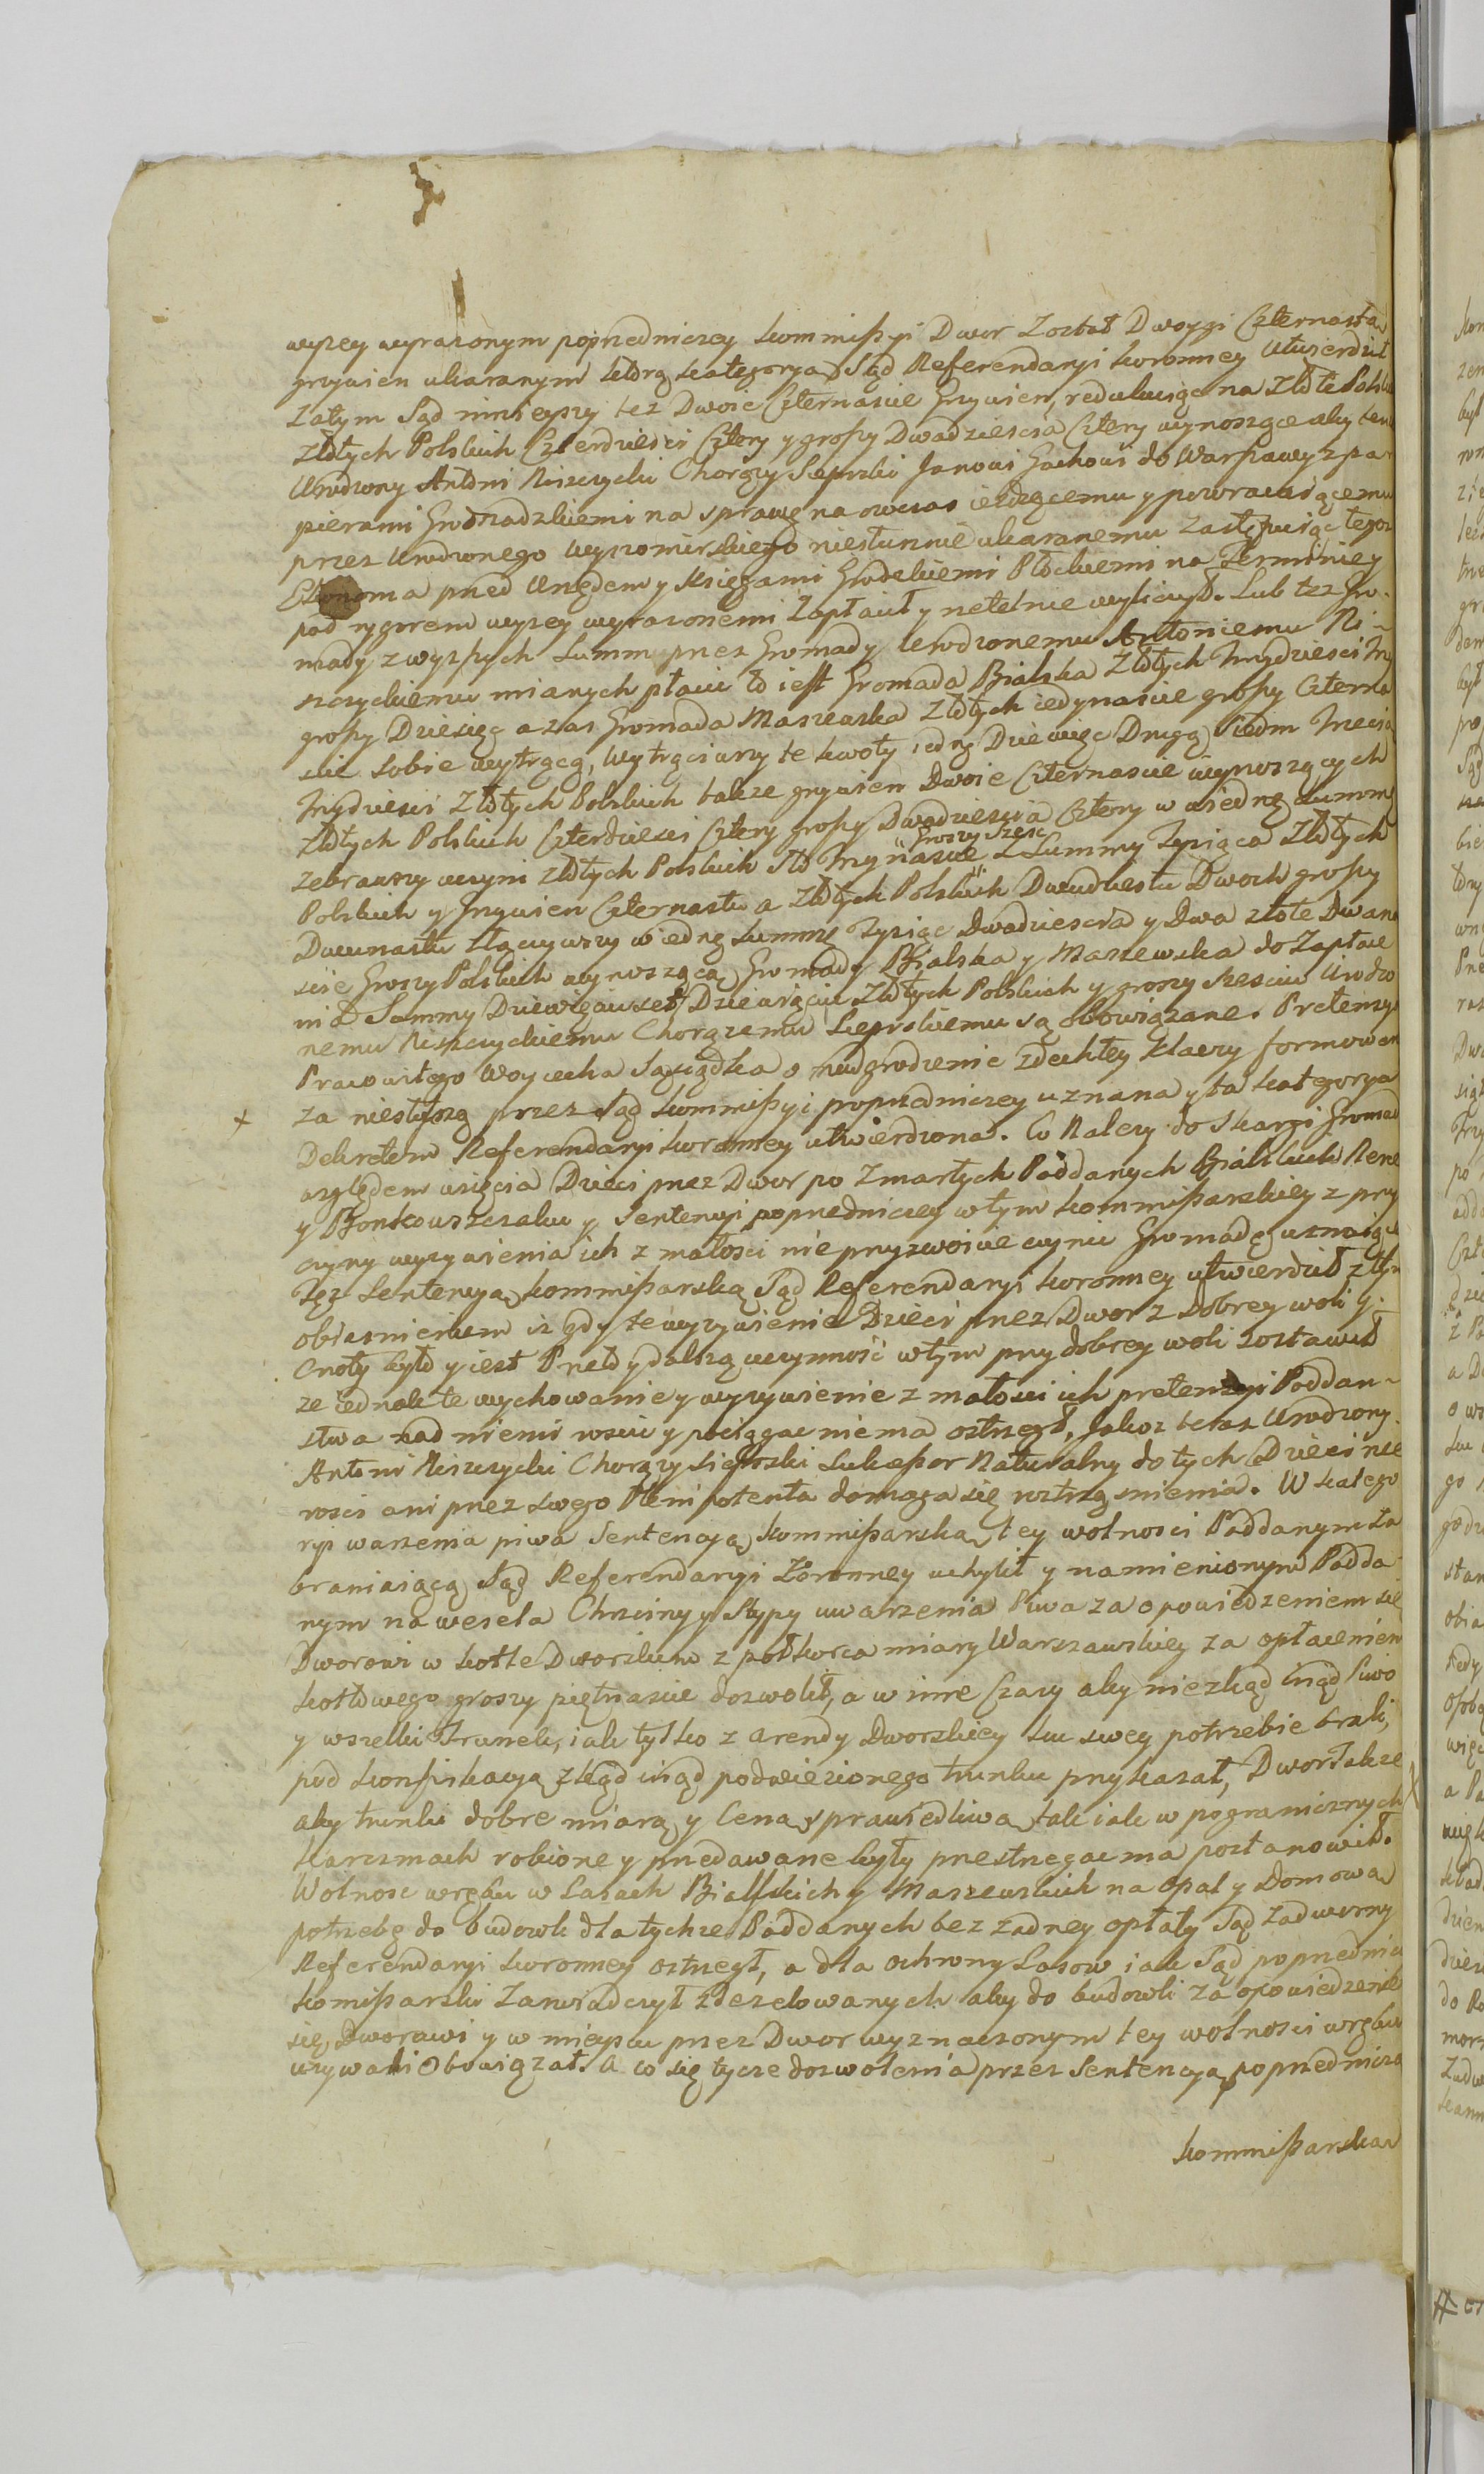 wyzey wyrazonym poprzedniczey kommißyi Dwor Został Dwoygi Czternasta
grzywien ukaranym którą kategoryą Sąd Referendaryi koronney Utwierdził
Zatym Sąd ninieyszy też Dwoie Czternascie Grzywien, redukuiąc na Złote Polskie
Złotych Polskich Czterdziesci Cztery y groszy Dwadziescia Cztery wynoszące aby tenże
Urodzony Antoni Niszczycki Chorąży Sieprski Janowi Gachowi do Warszawy z pa-
pierami Gromadzkiemi na sprawę na owczas iezdzącemu y powracaiącemu
przez Urodzonego Wyszomirskiego niesłusznie ukaranemu zastępuiąc tegoz
Ekonoma przed Urzędem y Xsięgami Grodzkiemi Płockiemi na Terminie y
pod rygorem wyzey wyrazonemi Zapłacił y rzetelnie wyliczył. Lub też Gro-
mady z wyzszych Summ przez Gromady Urodzonemu Antoniemu Ni-
szczyckiemu mianych płacic to iest Gromada Bialska Złotych Trzydziesci Trzy
groszy Dziesięc a zas Gromada Maszewska Złotych iedynascie groszy Czterna
scie Sobie wytrącą, Wytrąciwszy te kwoty iedną Dziewięc Drugą Siedm Trzecią
Trzydziesci Złotych Polskich takze grzywien Dwoie Czternascie wynoszących
Złotych Polskich Czterdziesci Cztery groszy Dwadziescia Cztery w iednę Summę
Groszy Szesc
zebrawszy uczyni złotych Polskich Sto Trzynascie Z Summy Tysiąca Złotych
Polskich y Grzywien Czternastu a Złotych Polskich Dwudziestu Dwoch groszy
Dwunastu złączywszy w iednę Summę Tysiąc Dwadziescia y Dwa złote Dwana
scie Groszy Polskich wynoszącą Gromady Bialska y Maszewska do Zapłace
nia Summy Dziewięciuset Dziewięciu Złotych Polskich y groszy Szesciu Urodzo
nemu Niszczyckiemu Chorązemu Sieprskiemu są obowiązane. Pretensya
Pracowitego Woyciecha Sąsiadka o nadgrodzenie zdechłey klaczy formowana
+ za niesłuszną przez Sąd kommißyi poprzedniczey uznana y ta kategorya
Dekretem Referendaryi koronney utwierdzona. Co Nalezy do Skargi Gromad
względem wzięcia Dzieci przez Dwor po Zmarłych Poddanych Bialskich Rene
y Bonkowszczaku y Sentencyi poprzedniczey w tym kommißarskiey z przy
czyny wyzywienia ich z małosci nie przyzwoicie czynic Gromadę uznaiące
Tęż Sentencyą kommißarską Sąd Referendaryi koronney utwierdził z tym
obiasnieniem iz gdy te wyzywienie Dzieci przez Dwor z dobrey woli y
Cnoty było y iest Przeto y dalszą uczynność w tym przy dobrey woli zostawił
ze iednak te wychowanie y wyzywienie z małosci ich pretensyi Poddan-
stwa nad niemi roscic y pociągac niema ostrzegł, Jakoz teraz Urodzony
Antoni Niszczycki Chorąży Sieprski Sukceßor Naturalny do tych Dzieci nie
rosci ani przez swego Plenipotenta domaga się roztrząsnienia. W katego
ryi warzenia piwa Sentencyą kommißarską tey wolnosci Poddanym za
braniaiącą Sąd Referendaryi Koronney uchylił y namienionym Podda-
nym na wesela Chrzciny y Stypy uwarzenia Piwa za opowiedzeniem się
Dworowi w kotle Dworskim z półkorca miary Warszawskiey za opłaceniem
kotłowego groszy piętnascie dozwolił, a w inne Czasy aby niezkąd inąd Piwo
y wszelki Trunek, iak tylko z arendy Dworskiey ku swey potrzebie brali,
pod konfiskacyą zkąd inąd podwiezionego trunku przykazał, Dwor Takze
aby trunki dobre miarą y Ceną sprawiedliwą tak iak w pogranicznych
karczmach robione y przedawane były przestrzegac ma postanowił.
Wolnosc wrębu w Lasach Bialskich y Maszewskich na opał y Domową
potrzebę do budowli dla tychze Poddanych bez zadney opłaty Sąd Zadworny
Referendaryi koronney ostrzegł, a dla ochrony Lasow iak Sąd poprzedniczy
komißarski Zaswiadczył zdezelowanych aby do budowli za opowiedzeniem
się Dworowi y w mieyscu przez Dwor wyznaczonym tey wolnosci wrębu
uzywali Obowiązał. a co się tycze dozwolenia przez Sentencyą poprzedniczą
kommißarską